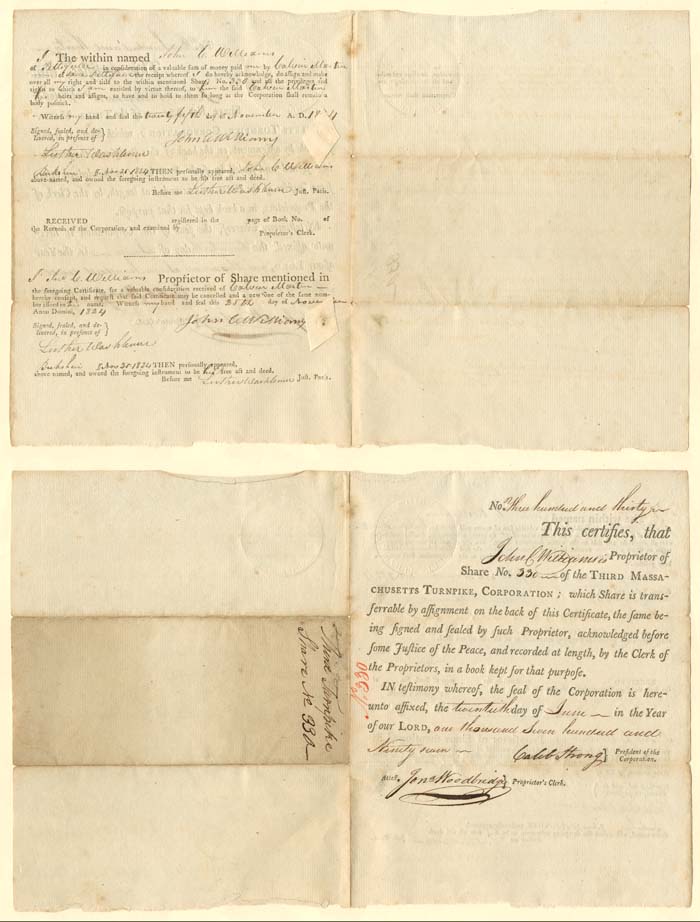 I The within named John C Williams
of Pittsfield in consideration of a valuable sum of money paid me by Calvin Martin
of said Pittsfield the receipt whereof I do hereby acknowledge, do aſſign and make
over all my right and title to the within mentioned Share No. 330 and all the privileges and
rights to which I am entitled by virtue thereof, to him the said Calvin Martin
his heirs and aſſigns, to have and to hold to them so long as the Corporation ſhall remain a
body politick.
Witneſs my hand and ſeal this twenty fifth day of November A. D. 1824
Signed, ſealed, and de-
livered, in preſence of
John C Williams
Luther Washburn
Berkshire S. Nov 25 1824 THEN perſonally appeared, John C Williams
above-named, and owned the foregoing inſtrument to be his free act and deed.
Before me Luther Washburn Juſt. Pacis.
RECEIVED regiſtered in the page of Book No. of
the Records of the Corporation, and examined by
Proprietor's Clerk.
I John C Williams Proprietor of Share mentioned in
the foregoing Certificate, for a valuable conſideration received of Calvin Martin
hereby conſent, and requeſt that ſaid Certificate may be cancelled and a new one of the ſame num-
ber iſſued in name. Witneſs my hand and ſeal this 25th day of November
Anno Domini, 1824
Signed, ſealed, and de-
livered, in preſence of
John C Williams
Luther Washburn
Berkshire S. Nov 25 1824 THEN perſonally appeared,
above named, and owned the foregoing inſtrument to be his free act and deed.
Before me Luther Washburn Juſt. Pacis.
Third Turnpike
Share No 330
No. three hundred and thirty
This certifies, that
John C Williams is Proprietor of
Share No. 330 of the THIRD MASSA-
CHUSETTS TURNPIKE, CORPORATION; which Share is tranſ-
ferrable by aſſignment on the back of this Certificate, the ſame be-
ing ſigned and ſealed by ſuch Proprietor, acknowledged before
ſome Juſtice of the Peace, and recorded at length, by the Clerk of
the Proprietors, in a book kept for that purpoſe.
IN teſtimony whereof, the ſeal of the Corporation is here-
unto affixed, the twentieth day of June in the Year
of our LORD, one thousand Seven hundred and
Ninety seven
Caleb Strong } Preſident of the
Corporation.
Atteſt. Jona Woodbridge } Proprietor's Clerk.
No 330